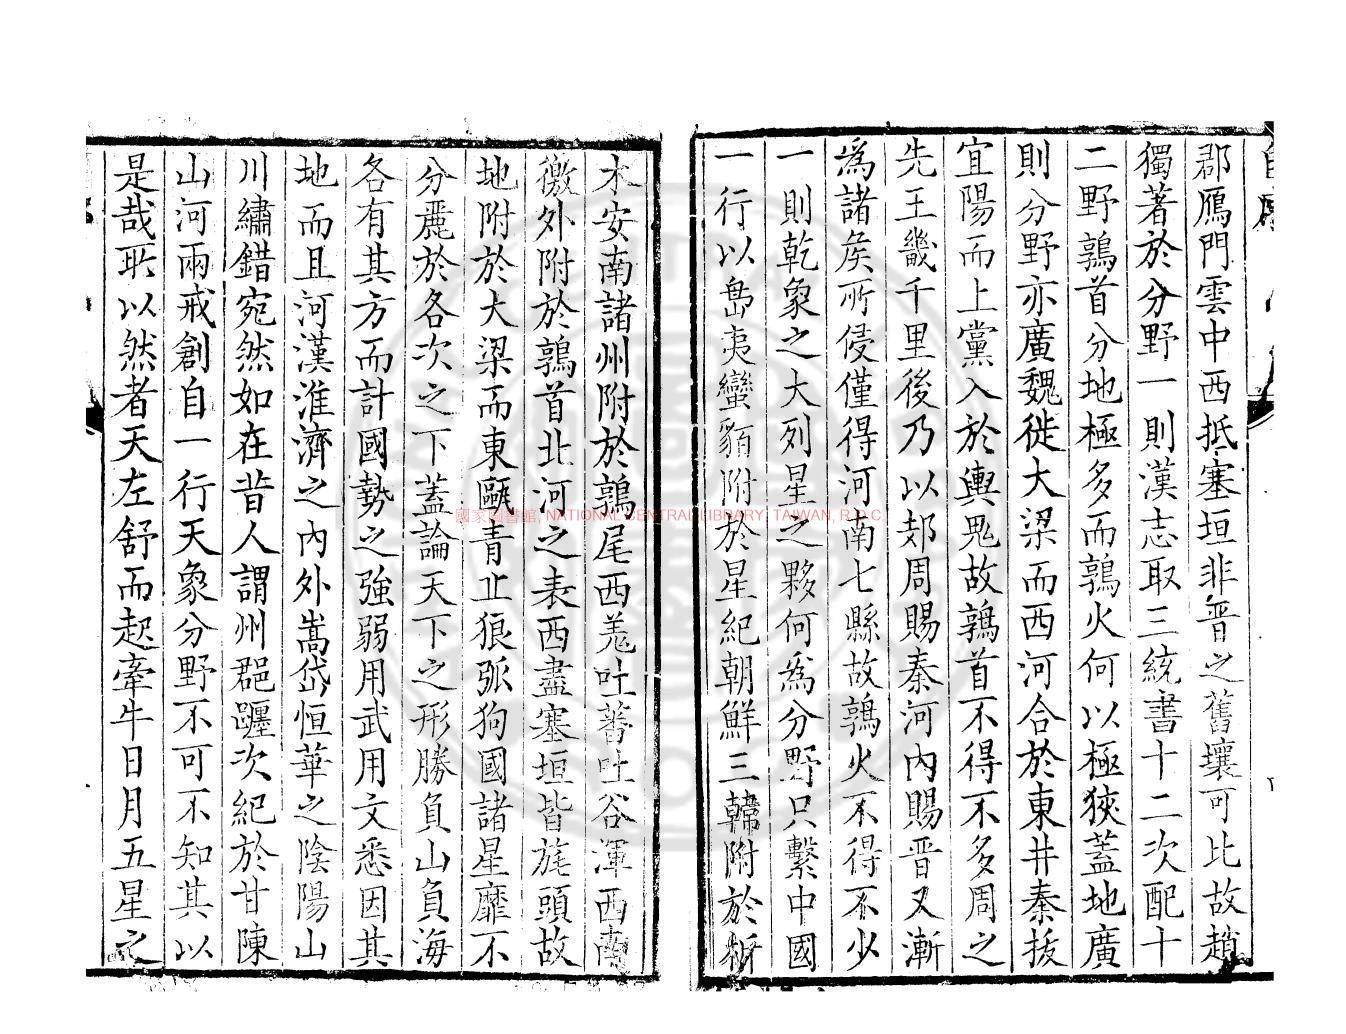 郡鴈門雲中西抵塞垣非晉之舊壤可比故趙
獨著於分野一則漢志取三統書十二次配十
二野鶉首分地極多而鶉火何以極狹蓋地廣
則分野亦廣魏徙大梁而西河合於東井秦拔
宜陽而上黨入於輿鬼故鶉首不得不多周之
先王畿千里後乃以郟周賜秦河內賜晉又漸
為諸矦所侵僅得河南七縣故鶉火不得不少
一則乾象之大列星之夥何為分野只繫中國
一行以島夷蠻貊附於星紀朝鮮三韓附於析
木安南諸州附於鶉尾西羌吐蕃吐谷渾西南
徼外附於鶉首北河之表西盡塞垣皆旄頭故
地附於大梁而東甌青丘狼弧狗國諸星靡不
分麗於各次之下蓋論天下之形勝負山負海
各有其方而計國勢之強弱用武用文悉因其
地而且河漢淮濟之內外嵩岱恒華之陰陽山
川繡錯宛然如在昔人謂州郡躔次紀於甘陳
山河兩戒創自一行天象分野不可不知其以
是哉所以然者天左舒而起牽牛日月五星之
國家圖書館, NATIONAL CENTRAL LIBRARY, TAIWAN, R.O.C.